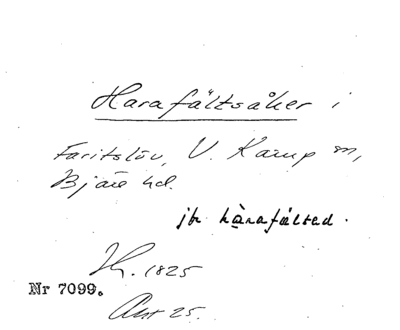 Harafältsåker i
Faritslöv, V. Karup sn,
Bjäre hd.
jfr hàrafälted.
Sk. 1825
Nr 7099.
Akt 25.